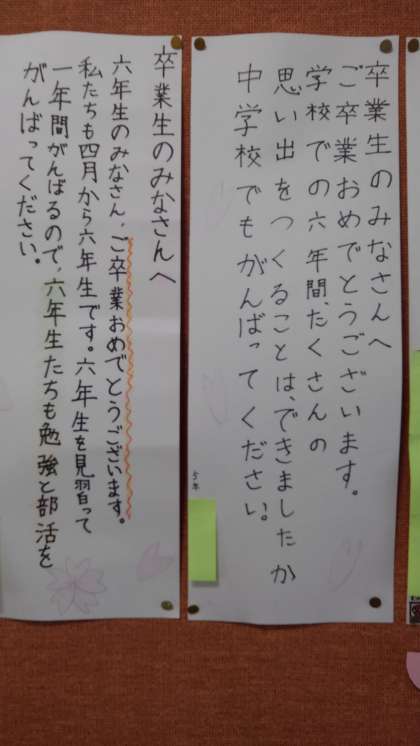 卒業生のみなさんへ
ご卒業おめでとうございます。
学校での六年間、たくさんの
思い出をつくることは、できましたか
中学校でもがんばってください。
5年
卒業生のみなさんへ
六年生のみなさん、ご卒業おめでとうございます。
私たちも四月から六年生です。六年生を見習って
一年間がんばるので、六年生たちも勉強と部活を
がんばってください。